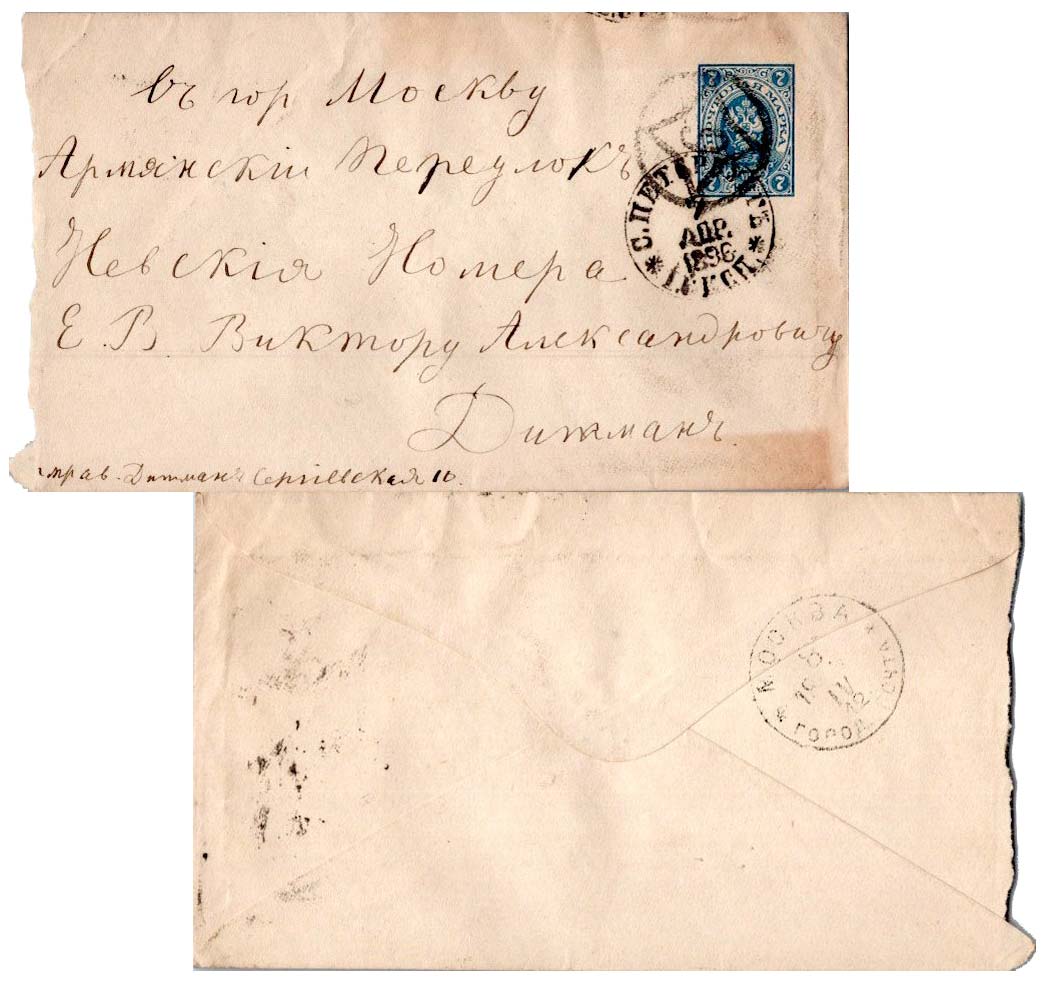 Въ гор Москву
Армянскій Переулокъ
Невскія Номера
Е. В. Виктору Александровичу
Дитманъ.
Дитманъ Сергіевская
7 7
ПОЧТОВАЯ МАРКА
7 7
С.ПЕТЕРБУРГЪ
АПР.
1896
МОСКВА
ПОЧТА
ГОРОД.
IV
12